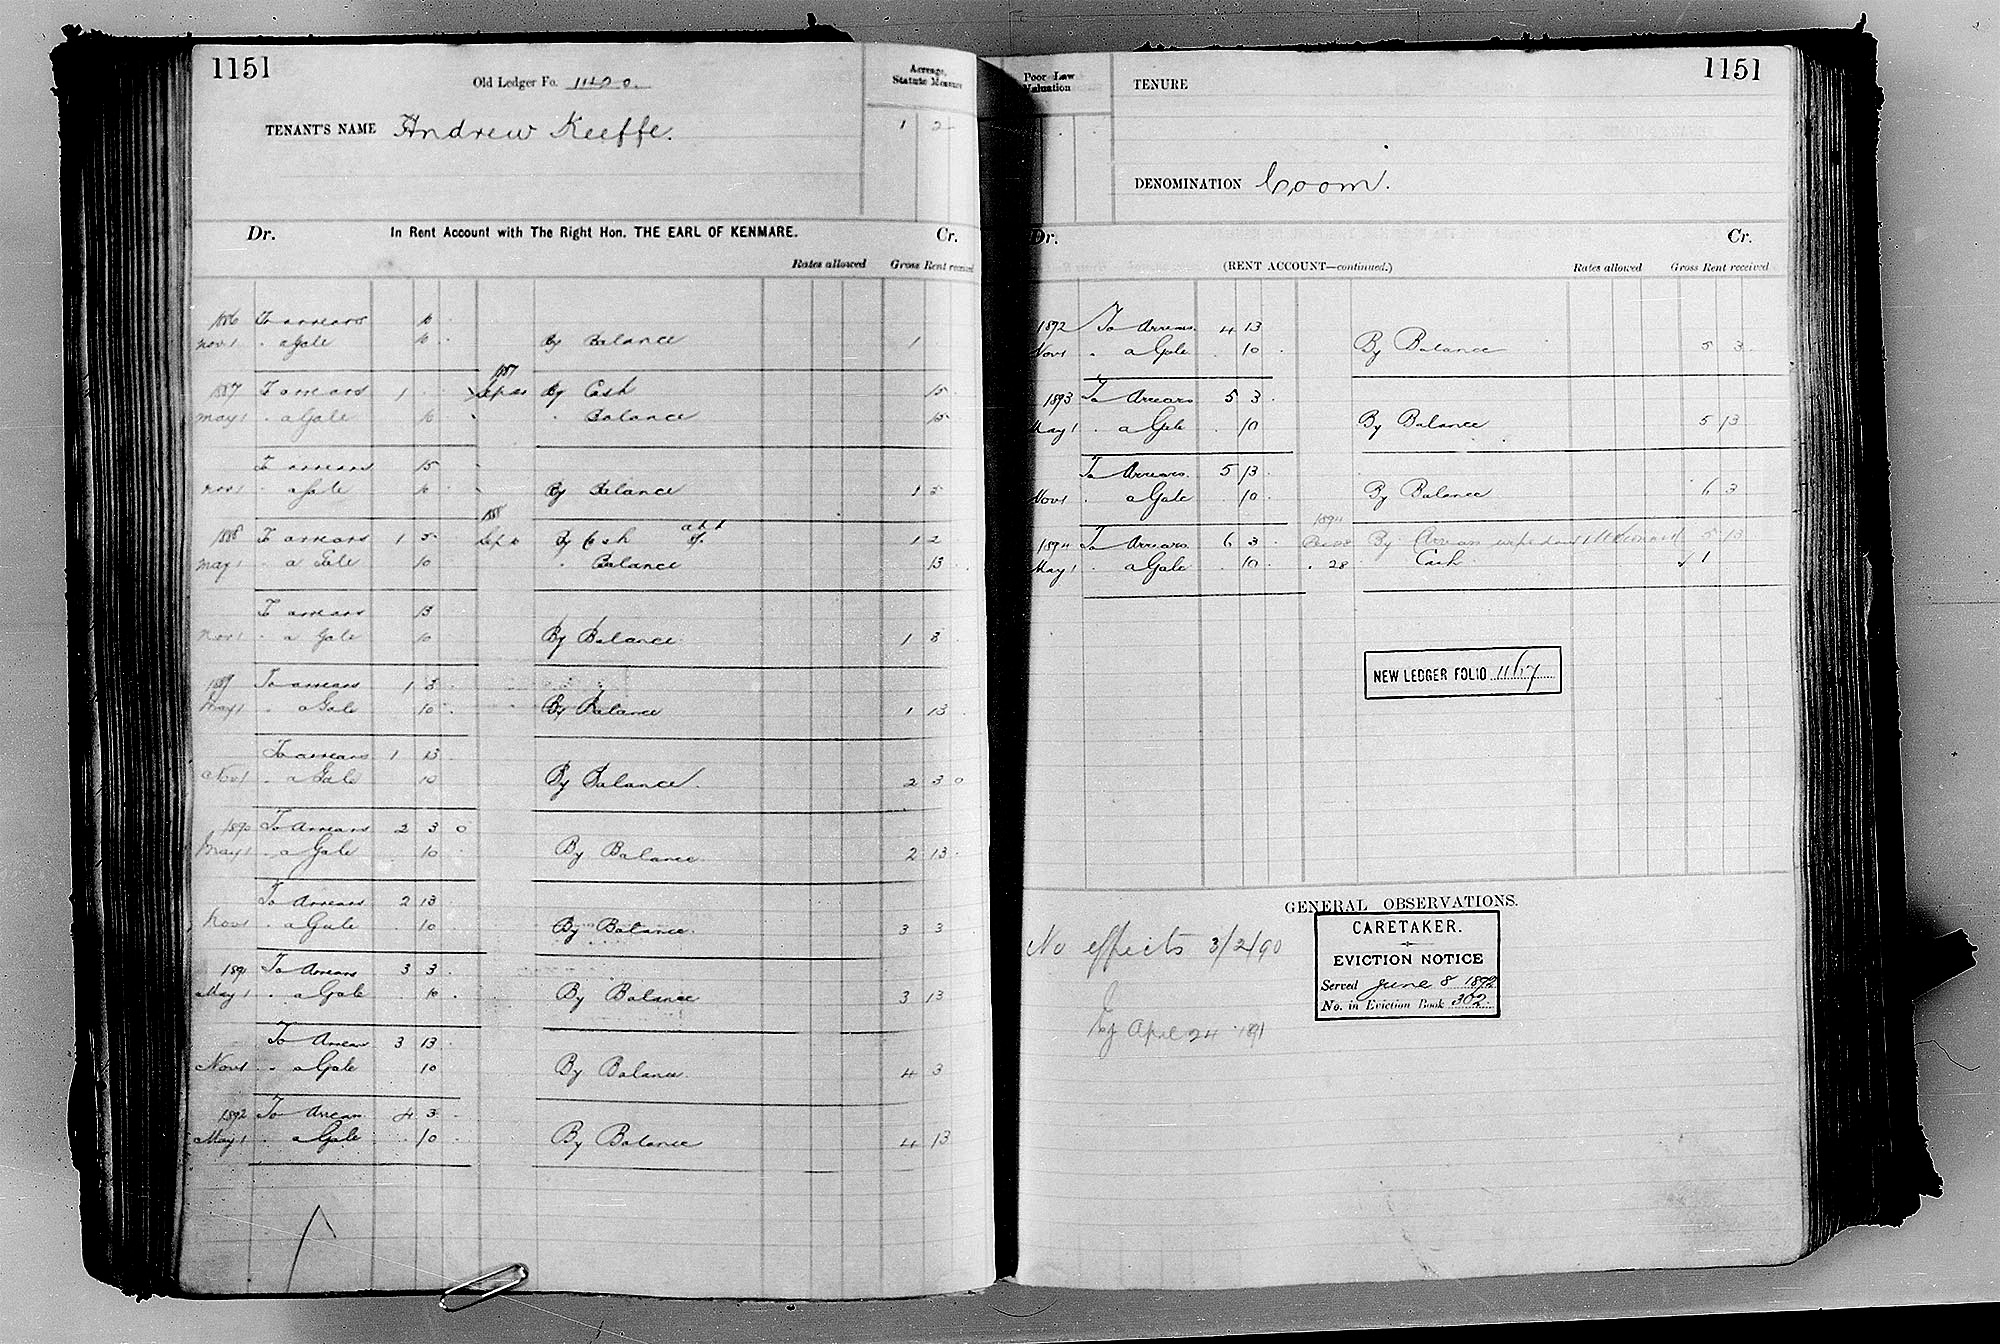 1151
Old Ledger Fo. 1140 0.
Acreage, Statute Measure
TENANT'S NAME Andrew Keeffe.
1 2
Dr. In Rent Account with The Right Hon. THE EARL OF KENMARE. Cr.
Rates allowed Gross Rent received
1886 To arrears 10
Nov 1 " a Gale 10 By Balance 1
1887
1887 To arrears 1 By Cash 15
May 1 " a Gale 10 " Balance 15
To arrears 15
Nov 1 " a Gale 10 By Balance 1 5
1888
1888 To arrears 1 5 Sep By Cash 12
May 1 " a Gale 10 " Balance 13
To arrears 13
Nov 1 " a Gale 10 By Balance 1 3
1889 To arrears 1 3
May 1 " a Gale 10 By Balance 1 13
To arrears 1 13
Nov 1 " a Gale 10 By Balance 2 3 0
1890 To Arrears 2 3 0
May 1 " a Gale 10 By Balance 2 13
To Arrears 2 13
Nov 1 " a Gale 10 By Balance 3 3
1891 To Arrears 3 3
May 1 " a Gale 10 By Balance 3 13
To Arrears 3 13
Nov 1 " a Gale 10 By Balance 4 3
1892 To Arrears 4 3
May 1 " a Gale 10 By Balance 4 13
Poor Law Valuation
TENURE
1151
DENOMINATION Coom.
Dr. Cr.
(RENT ACCOUNT—continued.) Rates allowed Gross Rent received
1892 To Arrears 4 13
Nov 1 " a Gale 10 By Balance 5 3
1893 To Arrears 5 3
May 1 " a Gale 10 By Balance 5 13
To Arrears 5 13
Nov 1 " a Gale 10 By Balance 6 3
1894
1894 To Arrears 6 3 28 By Arrears 5 13
May 1 " a Gale 10 " 28 Cash 1
NEW LEDGER FOLIO 1167
GENERAL OBSERVATIONS.
No effects 3/2/90
CARETAKER.
EVICTION NOTICE
Served June 8 1892
No. in Eviction Book 302
April 24 1891